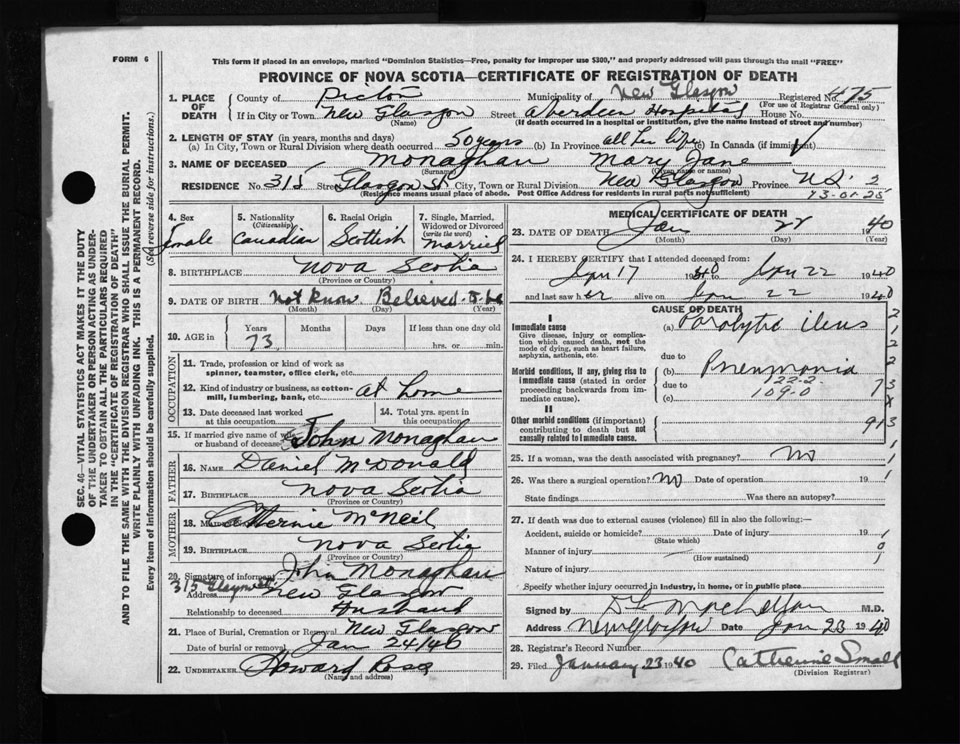 FORM 6
This form if placed in an envelope, marked "Dominion Statistics—Free, penalty for improper use $300," and properly addressed will pass through the mail "FREE"
PROVINCE OF NOVA SCOTIA—CERTIFICATE OF REGISTRATION OF DEATH
1. PLACE OF DEATH { County of Pictou Municipality of New Glasgow Registered No. 475
(For use of Registrar General only)
If in City or Town New Glasgow Street Aberdeen Hospital House No.
(Name) (If death occurred in a hospital or institution, give the name instead of street and number)
2. LENGTH OF STAY (in years, months and days)
(a) In City, Town or Rural Division where death occurred 50 years (b) In Province all her life (c) In Canada (if immigrant)
3. NAME OF DECEASED Monaghan Mary Jane
(Surname) (Given name or names)
RESIDENCE No. 315 Street Glasgow St. City, Town or Rural Division New Glasgow Province N.S. 2
(Residence means usual place of abode. Post Office Address for residents in rural parts not sufficient)
73-01-25
4. Sex
female
5. Nationality
(Citizenship)
Canadian
6. Racial Origin
Scottish
7. Single, Married, Widowed or Divorced
(write the word)
married
8. BIRTHPLACE Nova Scotia
(Province or Country)
9. DATE OF BIRTH Not know Believed to be
(Month) (Day) (Year)
10. AGE in { Years Months Days If less than one day old
73 hrs. or min.
OCCUPATION
11. Trade, profession or kind of work as
spinner, teamster, office clerk, etc.
12. Kind of industry or business, as cotton-
mill, lumbering, bank, etc. at home
13. Date deceased last worked
at this occupation
14. Total yrs. spent in
this occupation
15. If married give name of wife
or husband of deceased John Monaghan
FATHER
16. NAME Daniel McDonald
17. BIRTHPLACE Nova Scotia
(Province or Country)
MOTHER
18. Catherine McNeil
19. BIRTHPLACE Nova Scotia
(Province or Country)
20. Signature of informant John Monaghan
315
Address New Glasgow
Relationship to deceased Husband
21. Place of Burial, Cremation or Removal New Glasgow
Date of burial or removal Jan 24/40
22. UNDERTAKER Howard Ross
(Name and address)
MEDICAL CERTIFICATE OF DEATH
23. DATE OF DEATH Jan 22 1940
(Month) (Day) (Year)
24. I HEREBY CERTIFY that I attended deceased from:
Jan 17 1940 to Jan 22 1940
and last saw her alive on Jan 22 1940
CAUSE OF DEATH
I
Immediate cause (a) Paralytic ileus
Give disease, injury or complication which caused death, not the mode of dying, such as heart failure, asphyxia, asthenia, etc.
due to
Morbid conditions, if any, giving rise to immediate cause (stated in order proceeding backwards from immediate cause).
(b) Pneumonia
due to 122-2
(c) 109-0
II
Other morbid conditions (if important) contributing to death but not causally related to immediate cause.
25. If a woman, was the death associated with pregnancy? No
26. Was there a surgical operation? No Date of operation 19
State findings Was there an autopsy?
27. If death was due to external causes (violence) fill in also the following:—
Accident, suicide or homicide? Date of injury 19
(State which)
Manner of injury
(How sustained)
Nature of injury
Specify whether injury occurred in industry, in home, or in public place
Signed by M.D.
Address New Glasgow Date Jan 23 1940
28. Registrar's Record Number
29. Filed January 23 1940 Catherine Small
(Division Registrar)
SEC. 46—VITAL STATISTICS ACT MAKES IT THE DUTY
OF THE UNDERTAKER OR PERSON ACTING AS UNDER-
TAKER TO OBTAIN ALL THE PARTICULARS REQUIRED
IN THE "CERTIFICATE OF REGISTRATION OF DEATH"
AND TO FILE THE SAME WITH THE DIVISION REGISTRAR WHO SHALL ISSUE THE BURIAL PERMIT.
WRITE PLAINLY WITH UNFADING INK. THIS IS A PERMANENT RECORD.
Every item of information should be carefully supplied. (See reverse side for instructions.)